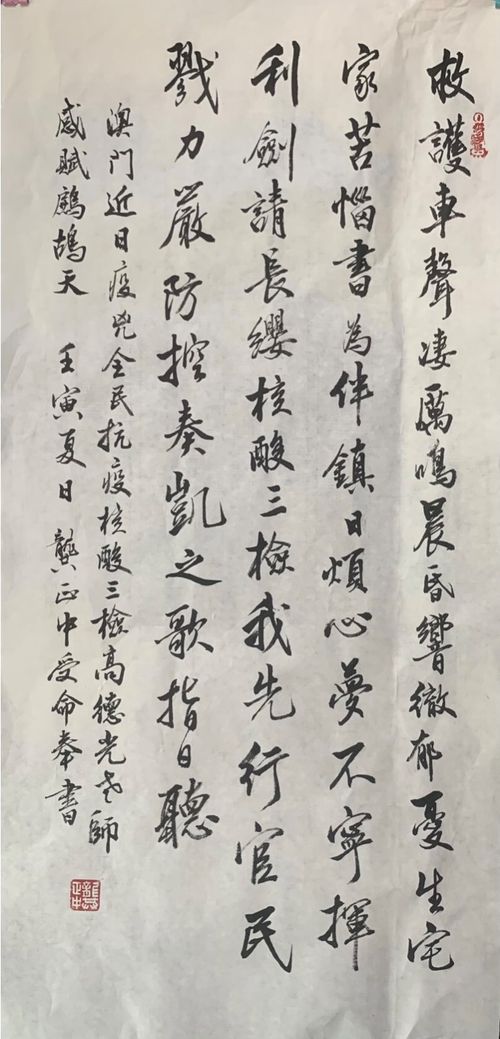 救護車聲淒厲鳴晨昏響徹郁憂生宅
家苦惱書為伴鎮日煩心夢不寧揮
利劍請長纓核酸三檢我先行官民
戮力嚴防控奏凱之歌指日聽
澳門近日疫兇全民抗疫核酸三檢高德光老師
感賦鷓鴣天 壬寅夏日 龔正中受命奉書